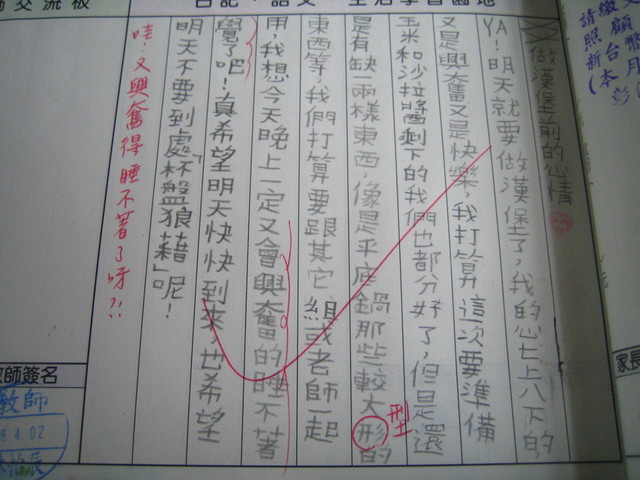 請照新(
做漢堡前的心情
YA!明天就要做漢堡了,我的心七上八下的,
又是興奮又是快樂,我打算這次要準備
玉米和沙拉醬剩下的我們也都分好了,但是還
是有缺一兩樣東西,像是平底鍋那些較大形的
型
東西等,我們打算要跟其它組或老師一起
用,我想今天晚上一定又會興奮的睡不著
覺了吧!真希望明天快快到來,也希望
明天不要到處「杯盤狼藉」呢!
哇!又興奮得睡不著了呀?!
交流板
家長
教師簽名
教師
4.02